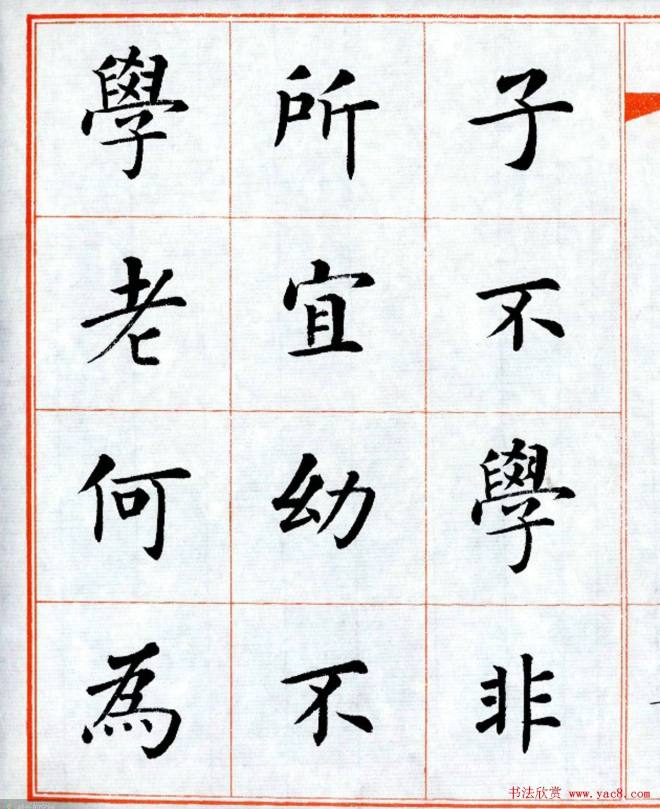 子不學非
所宜幼不
學老何為
书法欣赏 www.yac8.com